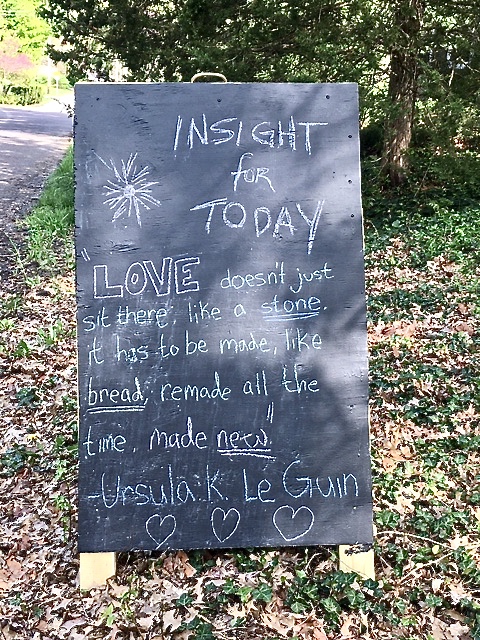 INSIGHT
for
TODAY
"LOVE doesn't just
sit there, like a stone.
it has to be made, like
bread, remade all the
time, made new."
-Ursula K. Le Guin